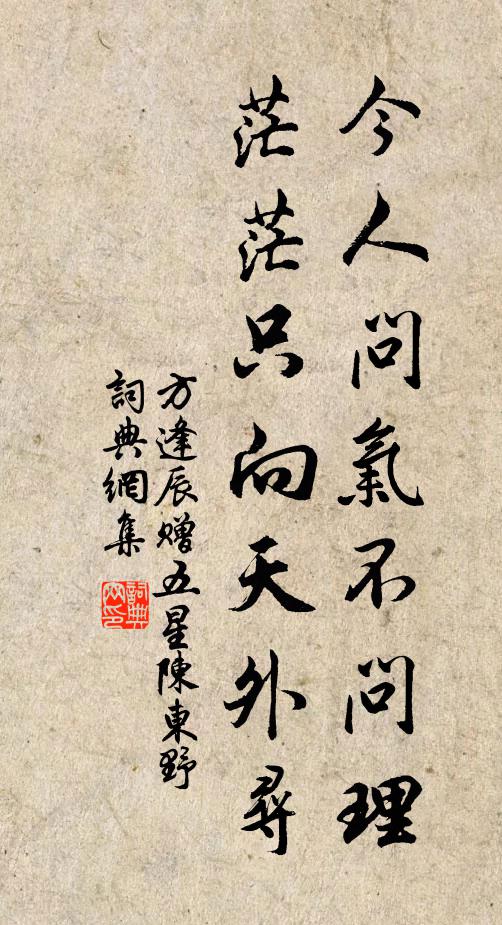 今人問氣不問理
茫茫只向天外尋
方逢辰贈五星陳東野
詞典網集
詞典網印